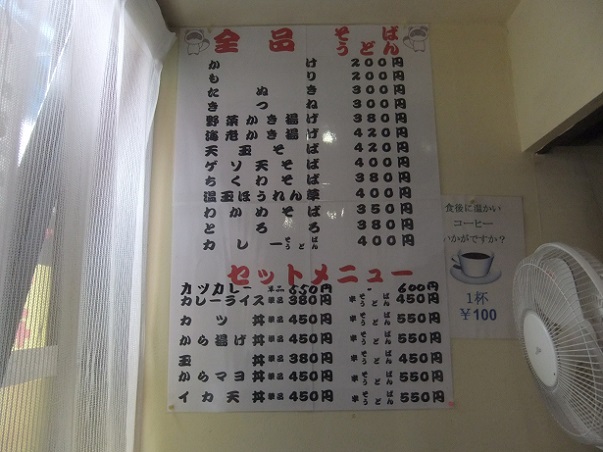 全品 そば うどん
かけ 200円
もり 200円
たぬき 300円
きつね 300円
野菜かき揚げ 380円
海老かき揚げ 420円
天玉そば 420円
ゲソ天そば 400円
ちくわそば 380円
温玉ほうれん草 400円
わかめそば 350円
とろろ 380円
カレーそばうどん 400円
セットメニュー
カツカレー 単品 550円 600円
カレーライス 単品 380円 半そばうどん 450円
カツ丼 単品 450円 半そばうどん 550円
から揚げ丼 単品 450円 半そばうどん 550円
玉丼 単品 380円 半そばうどん 450円
からマヨ丼 単品 450円 半そばうどん 550円
イカ天丼 単品 450円 半そばうどん 550円
食後に温かい
コーヒー
いかがですか?
1杯
¥100